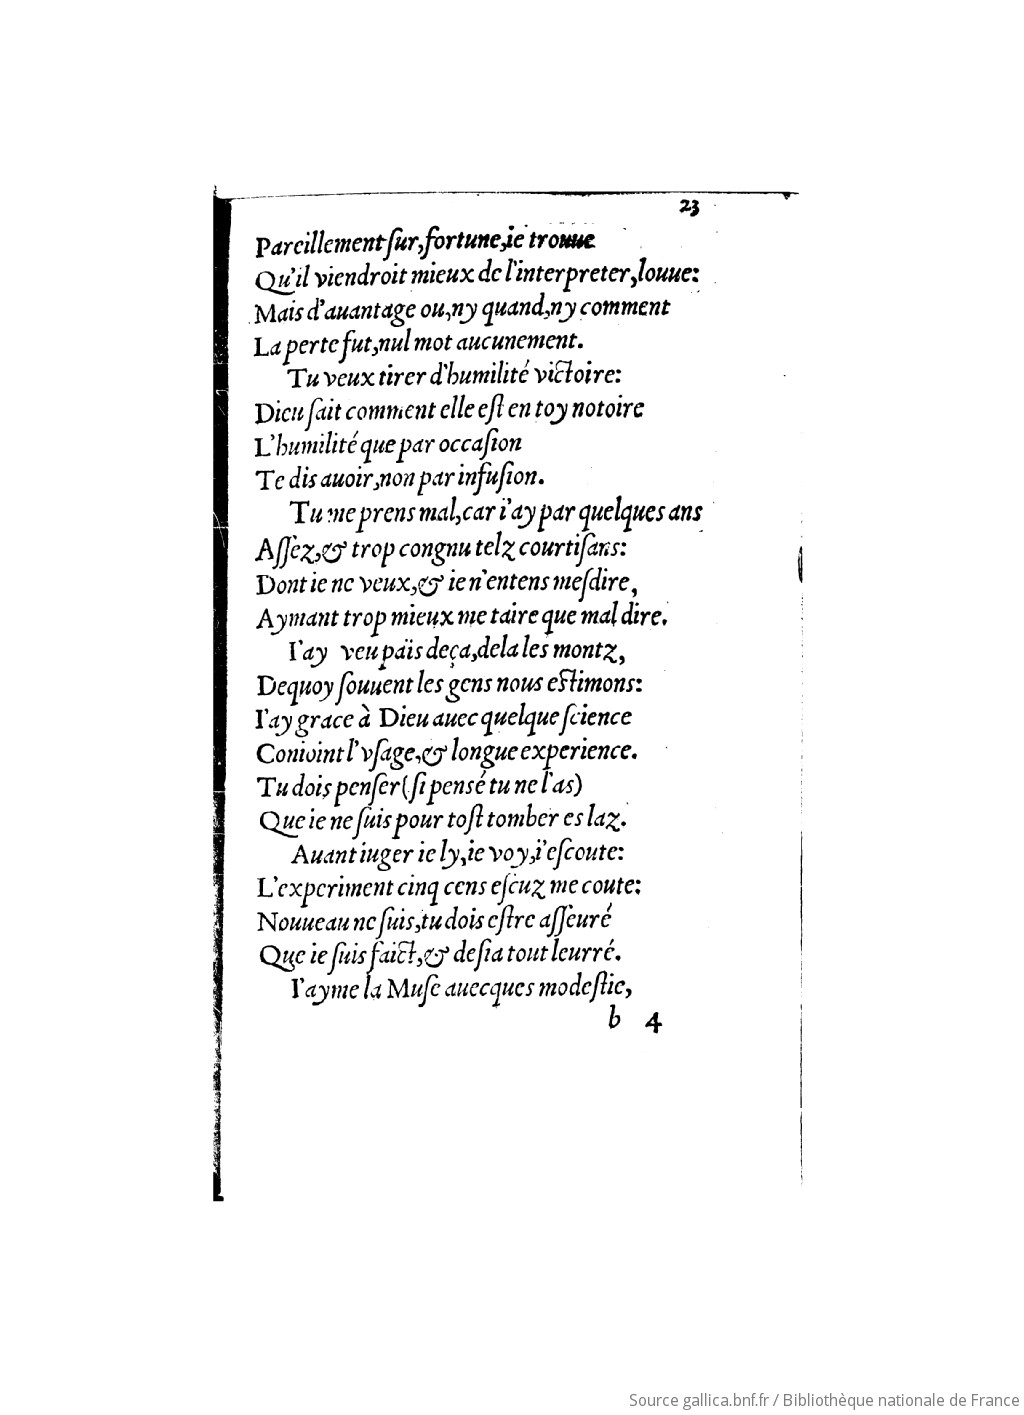 23
Pareillement sur, fortune, ie trouue
Qu'il viendroit mieux de l'interpreter, louue:
Mais d'auantage ou, ny quand, ny comment
La perte fut, nul mot aucunement.
Tu veux tirer d'humilité victoire:
Dieu sait comment elle est en toy notoire
L'humilité que par occasion
Te dis auoir, non par infusion.
Tu me prens mal, car i'ay par quelques ans
Assez, & trop congnu telz courtisans:
Dont ie ne veux, & ie n'entens mesdire,
Aymant trop mieux me taire que mal dire.
I'ay veu païs deça, dela les montz,
Dequoy souuent les gens nous estimons:
I'ay grace à Dieu auec quelque science
Conioint l'vsage, & longue experience.
Tu dois penser (si pensé tu ne l'as)
Que ie ne suis pour tost tomber es laz.
Auant iuger ie ly, ie voy, i'escoute:
L'experiment cinq cens escuz me coute:
Nouueau ne suis, tu dois estre asseuré
Que ie suis faict, & desia tout leurré.
I'ayme la Muse auecques modestie,
b 4
Source gallica.bnf.fr / Bibliothèque nationale de France